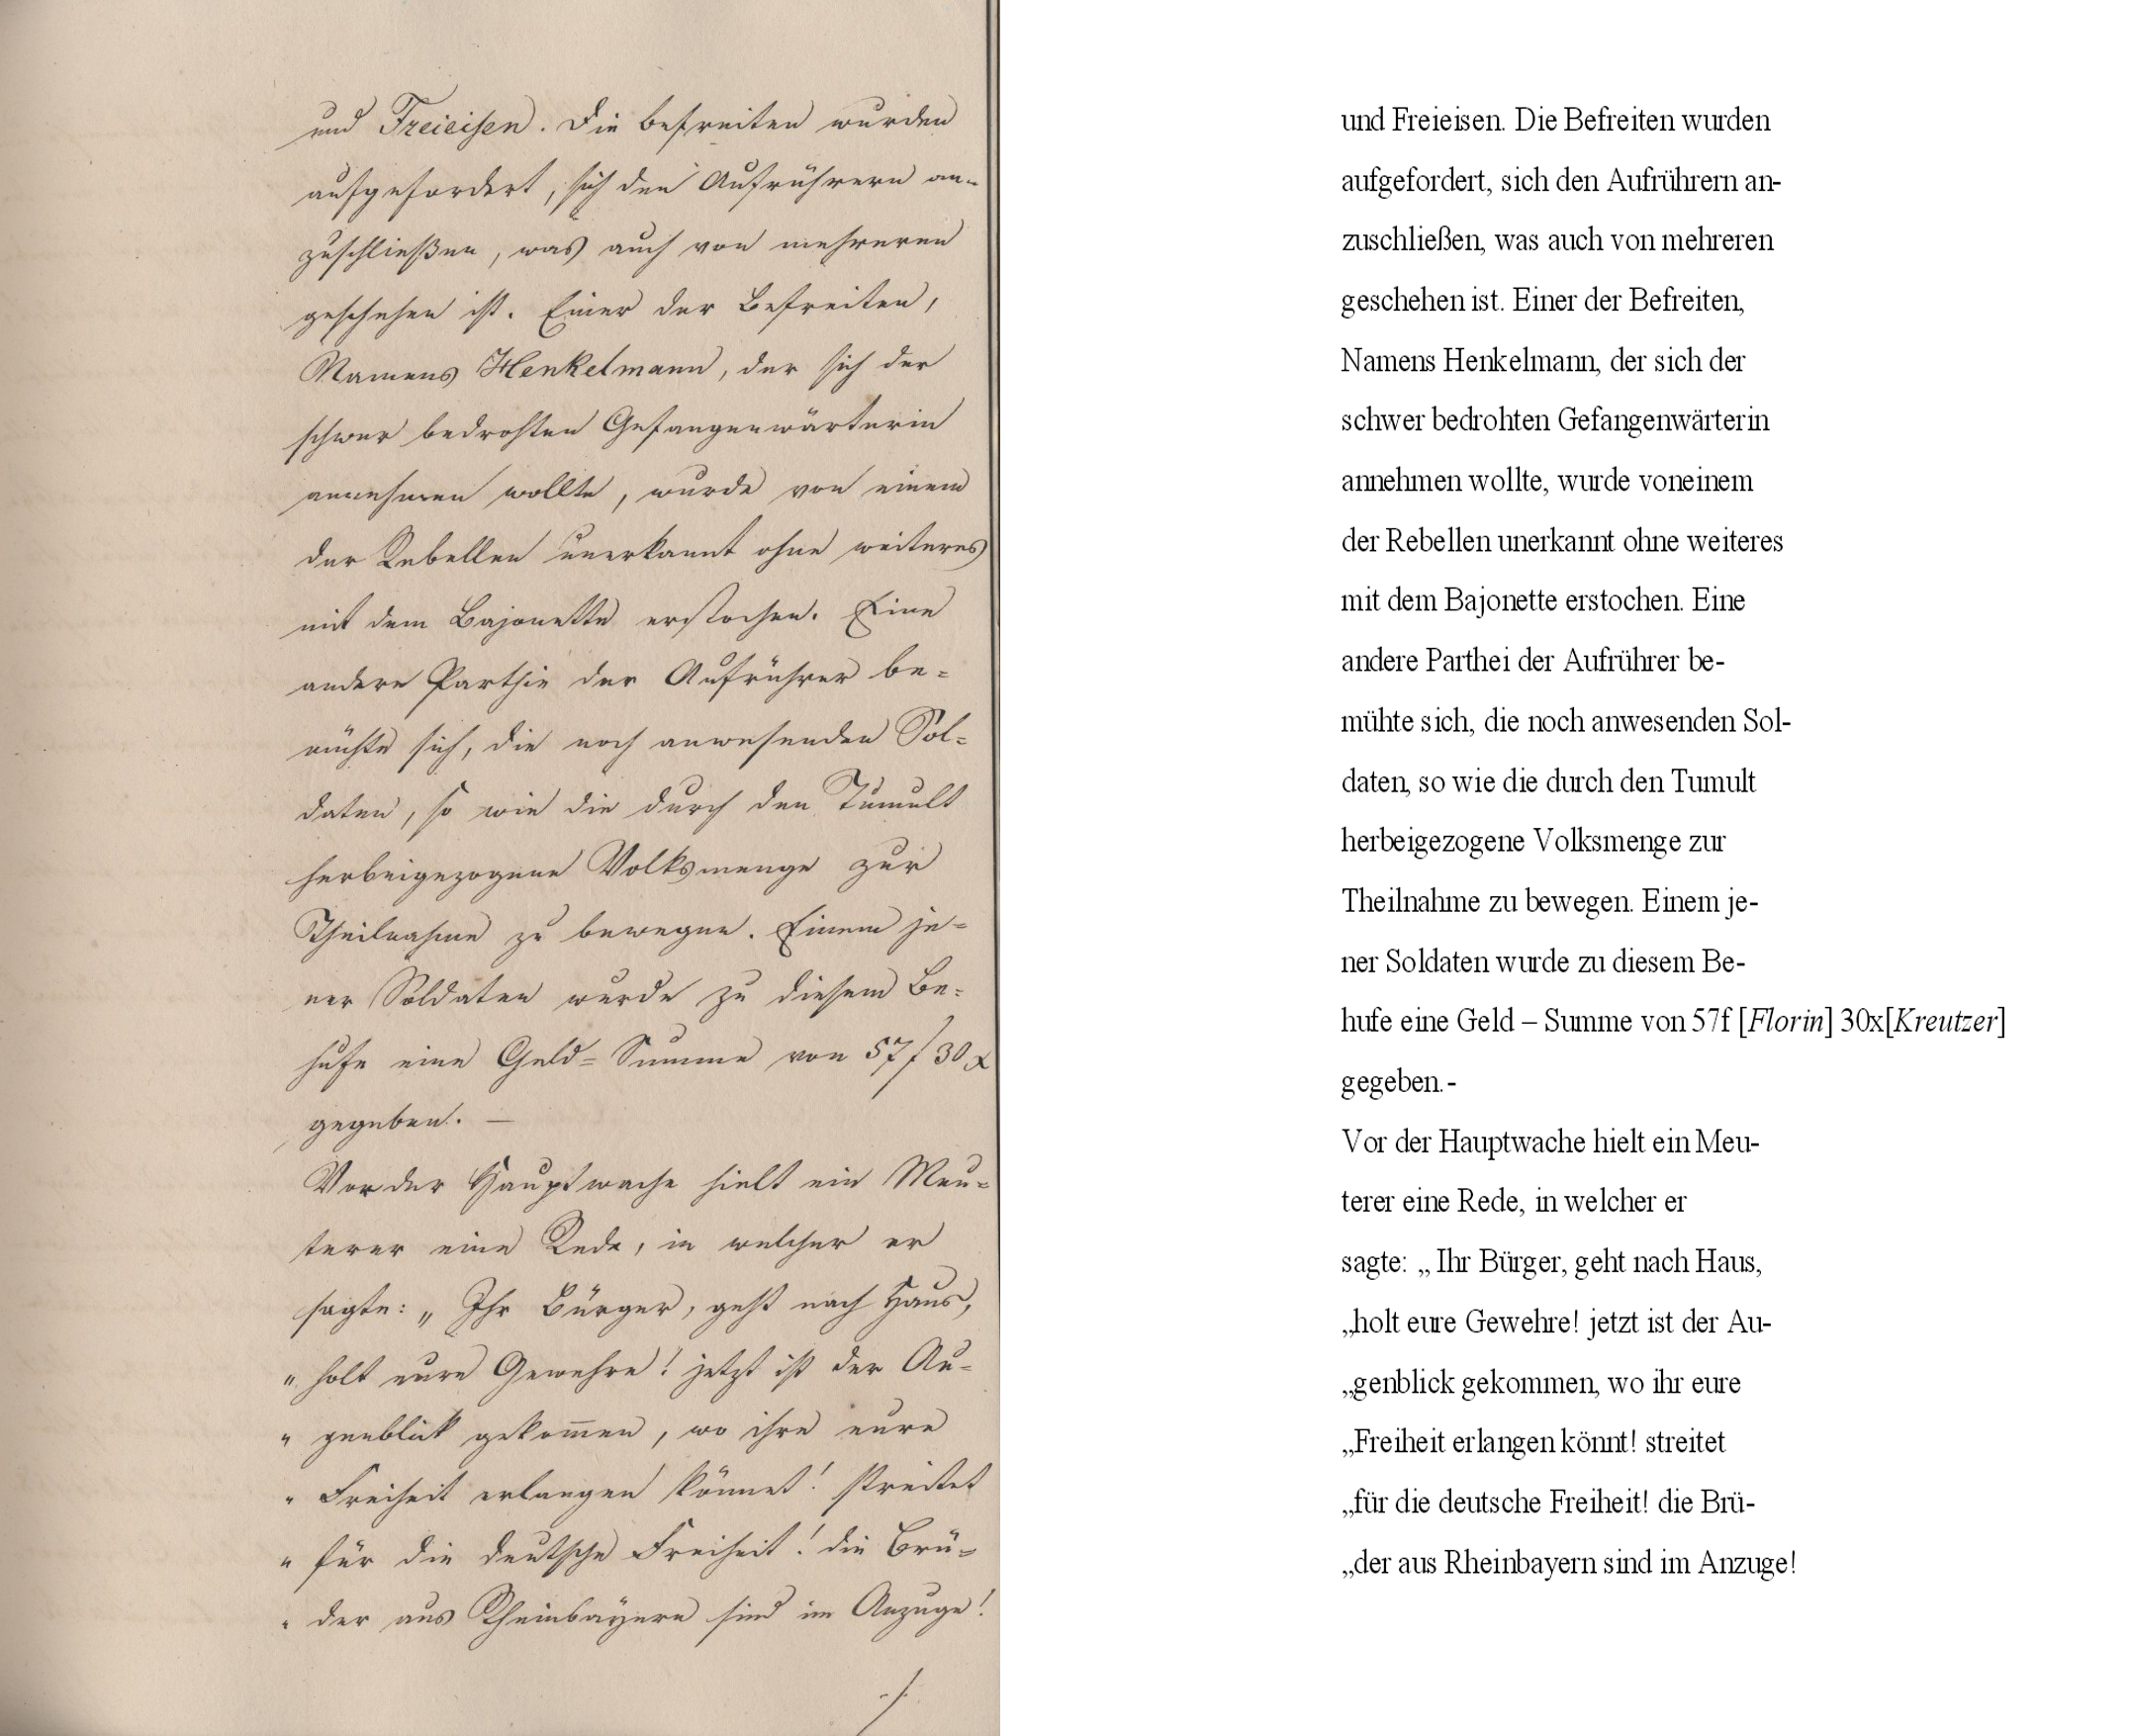 und Freieisen. Die Befreiten wurden
aufgefordert, sich den Aufrührern an-
zuschließen, was auch von mehreren
geschehen ist. Einer der Befreiten,
Namens Henkelmann, der sich der
schwer bedrohten Gefangenwärterin
annehmen wollte, wurde von einem
der Rebellen unerkannt ohne weiteres
mit dem Bajonette erstochen. Eine
andere Parthie der Aufrührer be=
mühte sich, die noch anwesenden Sol=
daten, so wie die durch den Tumult
herbeigezogene Volksmenge zur
Theilnahme zu bewegen. Einem je=
ner Soldaten wurde zu diesem Be=
hufe eine Geld=Summe von 57f 30x
gegeben. —
Vor der Hauptwache hielt ein Meu=
terer eine Rede, in welcher er
sagte: „Ihr Bürger, geht nach Haus,
„holt eure Gewehre! jetzt ist der Au=
„genblick gekom̅en, wo ihre eure
„Freiheit erlangen könnet! streitet
„für die deutsche Freiheit! die Brü=
„der aus Rheinbayern sind im Anzuge!
./.
und Freieisen. Die Befreiten wurden
aufgefordert, sich den Aufrührern an-
zuschließen, was auch von mehreren
geschehen ist. Einer der Befreiten,
Namens Henkelmann, der sich der
schwer bedrohten Gefangenwärterin
annehmen wollte, wurde voneinem
der Rebellen unerkannt ohne weiteres
mit dem Bajonette erstochen. Eine
andere Parthei der Aufrührer be-
mühte sich, die noch anwesenden Sol-
daten, so wie die durch den Tumult
herbeigezogene Volksmenge zur
Theilnahme zu bewegen. Einem je-
ner Soldaten wurde zu diesem Be-
hufe eine Geld – Summe von 57f [Florin] 30x[Kreutzer]
gegeben.-
Vor der Hauptwache hielt ein Meu-
terer eine Rede, in welcher er
sagte: „ Ihr Bürger, geht nach Haus,
„holt eure Gewehre! jetzt ist der Au-
„genblick gekommen, wo ihr eure
„Freiheit erlangen könnt! streitet
„für die deutsche Freiheit! die Brü-
„der aus Rheinbayern sind im Anzuge!